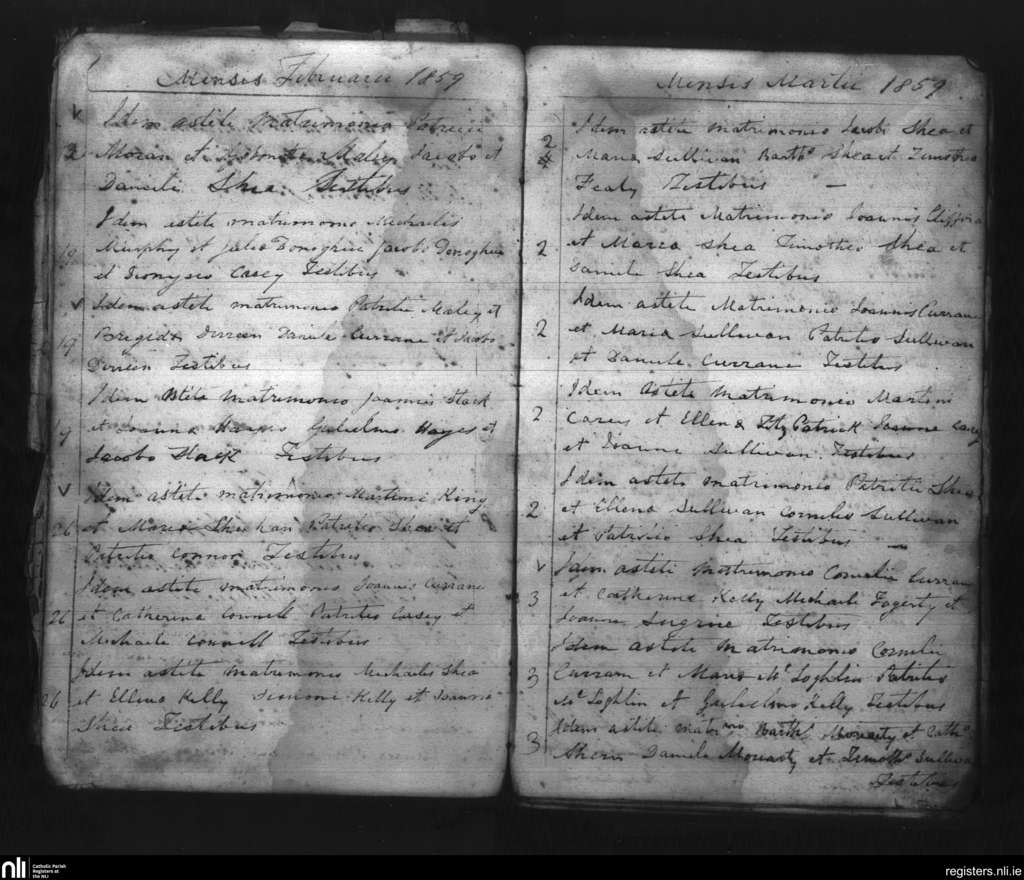 Mensis Februarii 1859
Idem astite matrimonio Patricii
2 Moran et Malley Jacobo et
Daniele Shea Testibus
Idem astite matrimonio Michaelis
19 Murphy et Julia Donoghue Jacobo Donoghue
et Dionysio Casey Testibus
Idem astite matrimonio Patritii Maley et
19 Brigida Dirreen Daniele Currane et Jacobo
Dirreen Testibus
Idem astite matrimonio Joannis Stack
19 et Joanna Hayes Gulielmo Hayes et
Jacobo Stack Testibus
Idem astite matrimonio Martini King
26 et Maria Sheehan Patritio Shea et
Patritio Connor Testibus
Idem astite matrimonio Joannis Currane
26 et Catherina Connell Patritio Casey et
Michaele Connell Testibus
Idem astite matrimonio Michaelis Shea
26 et Ellena Kelly Kelly et Joanna
Shea Testibus
Mensis Martii 1859
Idem astite matrimonio Jacobi Shea et
2 Maria Sullivan Barth° Shea et Timotheo
Fealy Testibus —
Idem astite Matrimonio Joannis Clifford
2 et Maria Shea Timotheo Shea et
Daniele Shea Testibus
Idem astite Matrimonio Joannis Currane
2 et Maria Sullivan Patritio Sullivan
et Daniele Currane Testibus
Idem Astite Matrimonio Martini
2 Carey et Ellena Fitz Patrick Joanne Carey
et Joanne Sullivan Testibus
Idem astite matrimonio Patritii Shea
2 et Ellena Sullivan Cornelio Sullivan
et Patricio Shea Testibus —
Idem astiti Matrimonio Cornelii Curran
3 et Catherina Kelly Michaele Fogerty et
Joanna Sugrue Testibus
Idem astite Matrimonio Cornelii
3 Curran et Maria Mc Loghlin Patritio
Mc Loghlin et Gulielmo Kelly Testibus
Idem astite Matrimonio Barth Moriarty et Cath°
3 Daniele Moriarty et Timoth° Sullivan
Testibus
nli
Catholic Parish
Registers at
the NLI
registers.nli.ie